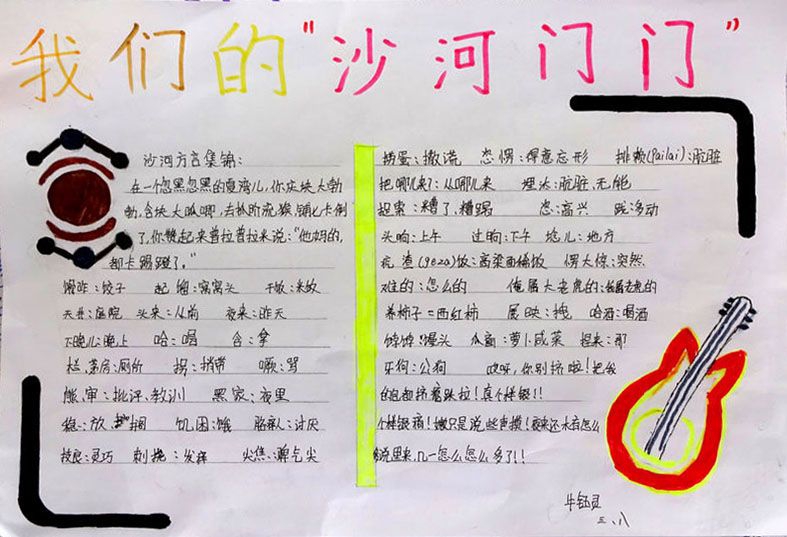 我们的"沙河门门"
沙河方言集锦:
在一个忽黑忽黑的夏湾儿,你庄块大勃
勃,含块大呱唧,去扒断流猴铺儿卡倒
了,你赞起来普拉普拉来说:"他妈的,
都卡踢蹬了。"
馉炸:饺子 起馏:窝窝头 干饭:米饭
天井:庭院 头来:从前 夜来:昨天
下晚儿:晚上 哈:喝 含:拿
栏、茅房:厕所 拐:捎带 噘:骂
熊、审:批评、教训 黑家:夜里
稳:放、搁 饥困:饿 胳痳人:讨厌
技良:灵巧 刺挠:发痒 尖焦:脾气尖
捞蛋:撒谎 恣愣:得意忘形 排赖(Pailai):肮脏
把哪儿来了:从哪儿来 埋汰:肮脏、无能
捉索:糟了、糟蹋 恣:高兴 跐:移动
头晌:上午 过晌:下午 埝儿:地方
渣(geza)饭:高粱面稀饭 愣大惊:突然
难的:怎么的 俺属大老虎的:我属老虎的
养柿子:西红柿 展映:拽 哈酒:喝酒
饽饽:馒头 瓜齑:萝卜咸菜 担来:那
牙狗:公狗 哎呀,你别挤啦!把我
的包都挤着跌拉!真个样银!!
个样银痛!嫩只是说,些声拨!夜来还木有怎么
说里来,几一怎么怎么多了!!
牛钰灵
三、八